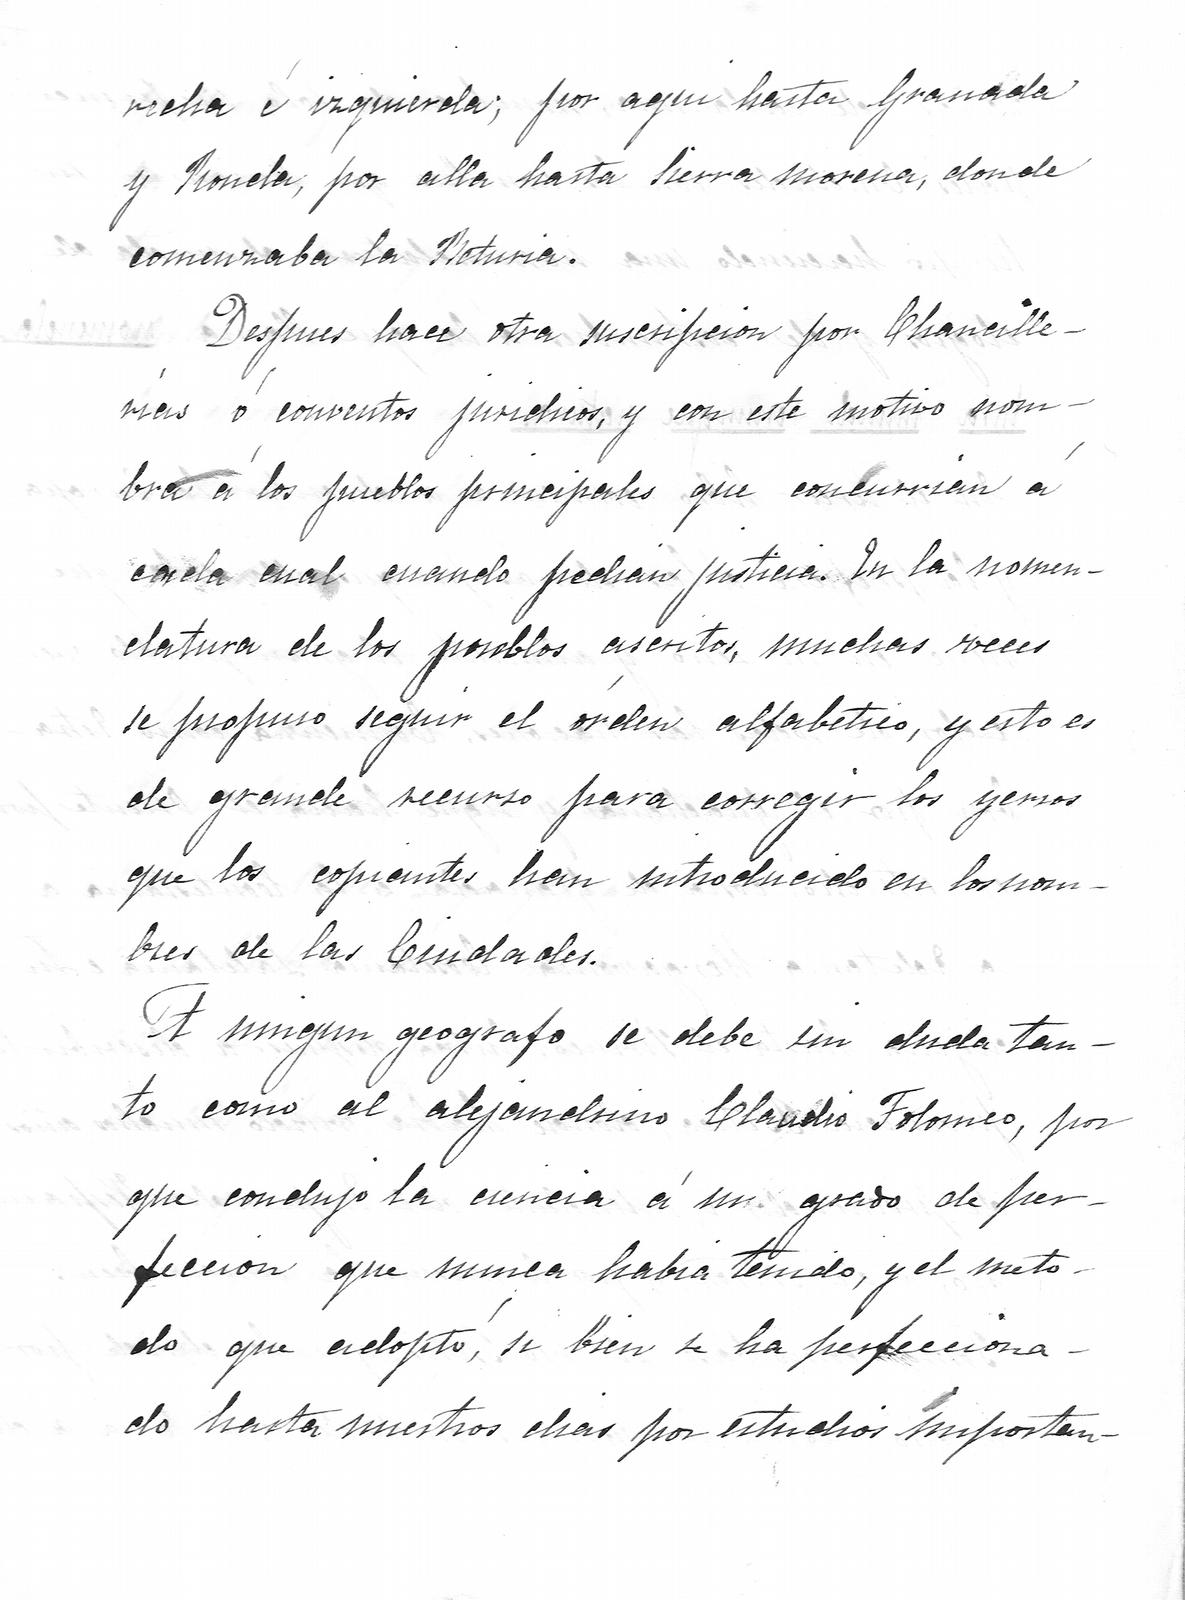 recha é izquierda; por aqui hasta Granada
y Ronda, por alla hasta Sierra morena, donde
comenzaba la Beturia.
Despues hace otra suscripcion por Chancille-
rías ó conventos juridicos, y con este motivo nom-
bra á los pueblos principales que concurrian á
cada cual cuando pedian justicia. En la nomen-
clatura de los pueblos ascritos, muchas veces
se propuso seguir el órden alfabetico, y esto es
de grande recurso para corregir los yerros
que los copiantes han introducido en los nom-
bres de las Ciudades.
A ningun geografo se debe sin duda tan-
to como al alejandrino Claudio Tolomeo, por
que condujo la ciencia á un grado de per-
feccion que nunca habia tenido, y el meto-
do que adoptó, si bien se ha perfecciona-
do hasta nuestros dias por estudios importan-